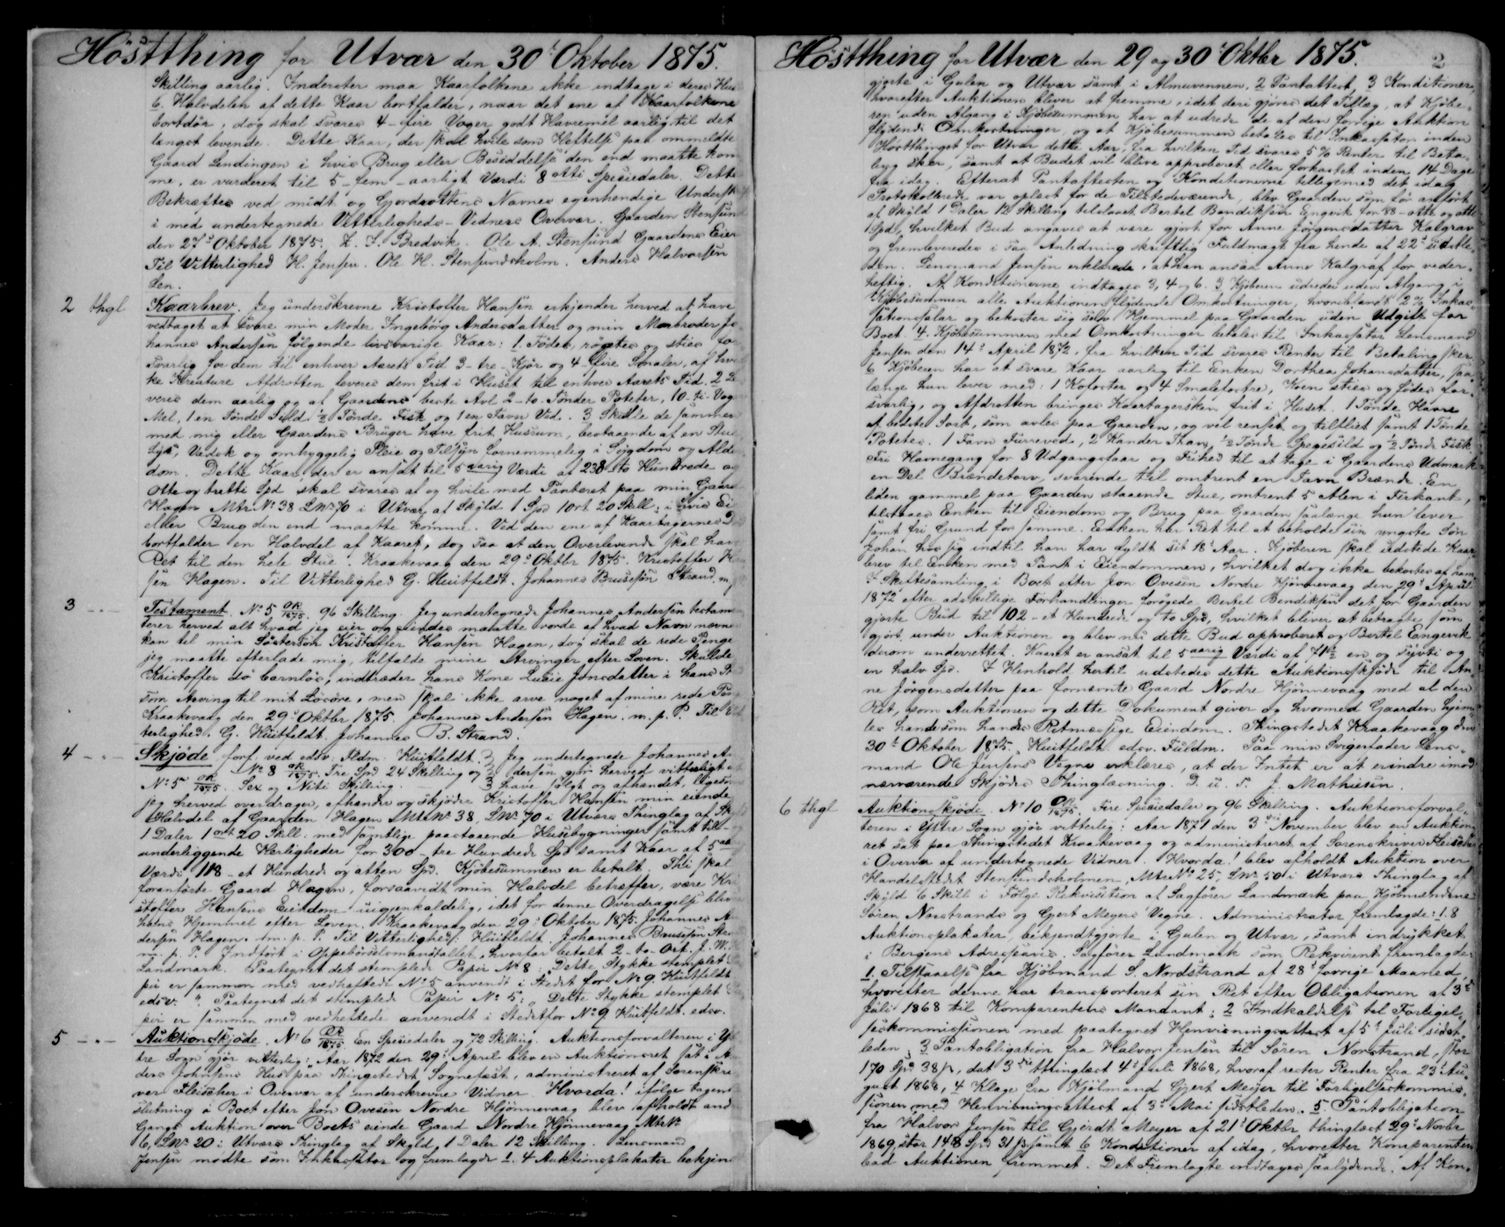 Høstthing for Utvær den 30t Oktober 1875.
Skilling aarlig. Inderster maa Kaarfolkene ikke indtage i deres Huus
6. Halvdelen af dette Kaar bortfalder, naar det ene af Kaarfolkene
bortdør, dog skal svares 4 - fire Voger godt Havremel aarlig til det
længst levende. Dette Kaar, der skal hvile som Heftelse paa ommeldte
Gaard Lindingen i hvis Brug eller Besiddelse den end maatte kom
me, er vurderet til 5 - fem - aarligt Værdi 8 otte Speciedaler. Dette
Bekræftes ved midt og Gjordsottens Navnes egenhændige Underskr
i med undertegnede Vitterligheds-Vidners Overvær. Gaarden Stensund
den 27d Oktober 1875. Z. Z. Bredvik. Ole A. Stensund Gaardens Eier
Til Vitterlighed H. Jensen. Ole H. Stensundsholm. Anders Halvorsen
2 thgl Kaarbrev. Jeg underskrevne Kristoffer Hansen erkjender herved at have
vedtaget at svare min Moder Ingeborg Andersdatter og min Morbroder Jo
hannes Andersen følgende livsvarige Kaar: 1. Fødes, røgtes og sties for
svarlig for dem til enhver Aarets Tid 3 - tre - Kjør og 4 - fire Sonaler, af hvil
ke Kreature Afdrotten leveres dem frit i Huset til enhver Aarets Tid. 2 Le
veres dem aarlig og af Gaardens beste Avl 2 - to Tønder Poteter, 10 - ti - Voger
Mel, 1 en Tønde Sild, ½ Tønde Fisk og 1 en Favn Ved. 3 Skulle de sammen
med mig eller Gaardens Bruger have frit Husrum, bestaaende af en Stue
lys, Vædsk og omhyggelig Pleie og Tilsyn fornemmelig i Sygdom og Alder
dom. Dette Kaar, der er ansat til 5 aarig Værdi af 238 to Hundrede og
otte og tretti Spd skal svares af og hvile med Panteret paa min Gaard
Hagen Mtr. No 38 LNo 70 i Utvær, af Skyld 1 Spd 1 Ort 20 Skill: i hvis Ei
eller Brug den end maatte komme. Ved den ene af Kaartagernes Død
bortfalder en Halvdel af Kaaret, dog saa at den Overlevende skal have
Ret til den hele Stue. Kraakevaag den 29d Oktbr 1875. Kristoffer Han
sen Hagen. Til Vitterlighed G. Huitfeldt. Johannes Brusesen Strand. m. p.
3 - - - Testament. No 5 96 Skilling. Jeg undertegnede Johannes Andersen testamen
terer herved alt hvad jeg eier og eiendes maatte vorde af hvad Navn nævnes
kan til min Søstersøn Kristoffer Hansen Hagen, dog skal de rede Penge
jeg maatte efterlade mig, tilfalde mine Arvinger efter Loven. Skulde
Kristoffer dø barnløs, indtræder hans Kone Lucie Jonsdatter i hans St
som Arving til mit Løsøre, men skal ikke arve noget af mine rede Penge
Kraakevaag den 29d Oktbr 1875. Johannes Andersen Hagen. m. p. P. Til Vit
terlighed. G. Huitfeldt. Johannes B. Strand.
4 - - - Skjøde forf. ved edsv. Fuldm. Huitfeldt. Jeg undertegnede Johannes An
No 8 Tre Spd 24 Skilling og dersen gjør herved vitterligt at
No 5 Sex og Niti Skilling. have solgt og afhændet, ligesom
jeg herved overdrager, afhænder og skjøder Kristoffer Hansen min eiende
Halvdel af Gaarden Hagen MtrNo 38, LNo 70 i Utvær Thinglag af Skyld
1 Daler 1 ort 20 Skill. med samtlige paastaaende Huusbygninger samt til
underliggende Herligheder for 300 - tre Hundrede Spd samt Kaar af 5 aa
Værdi 118 - et Hundrede og atten Spd. Kjøbesummen er betalt. Thi skal
foranførte Gaard Hagen, forsaavidt min Halvdel betræffer, være Kri
stoffers Hansens Eiendom uigjenkaldelig, idet for denne Overdragelse bliver
hans Hjemmel efter Loven. Kraakevaag den 29d Oktober 1875. Johannes An
dersen Hagen. m. p. P. Til Vitterlighed: Huitfeldt. Johannes Brusesen Stran
m. p. P. Indført i Oppebørselsmanuallet, hvorfor betalt 2 - to Ort. J. W.
Landmark. Paategnet det stemplede Papir No 8: Dette Stykke stemplet Pa
pir er sammen med vedheftede No 5 anvendt i Stedet for No 9 Huitfeldt
edsv. " Paategnet det stemplede Papir No 5: Dette Stykke stemplet
pir er sammen med vedheftede anvendt i Stedet for No 9 Huitfeldt. edsv.
5 - - - Auktionsskjøde. No 6 En Speciedaler og 72 Skilling. Auktionsforvalteren i Yt
tre Sogn gjør vitterlig: Aar 1872 den 29d April blev en Auktionsret sat i A
ders Johnsens Huus paa Thingstedet Sognefæst, administreret af Sorenskri
ver Fleischer i Overvær af underskrevne Vidner. Hvorda! ifølge tagen
slutning i Boet efter Jon Ovesen Nordre Hjønnevaag blev afholdt anden
Gangs Auktion over Boets eiende Gaard Nordre Hjønnevaag MtrNo
6, LNo 20 i Utvær Thinglag af Skyld, 1 Daler 12 Skilling. Lensmand
Jensen mødte som Inkassator og fremlagde 1. 4 Auktionsplakater bekjendt
Høstthing for Utvær den 29 og 30t Oktbr 1875. 2
gjorte i Gulen og Utvær samt i Almuevennen, 2 Pantattest, 3 Konditioner,
hvorefter Auktionen bliver at fremme, idet dere gjøres det Tillæg, at Kjøbe-
ren uden Afgang i Kjøbesummen har at udrede de af den forrige Auktion
flydende Omkostninger, og at Kjøbesummen betales til Inkassator inden
Høstthinget for Utvær dette Aar, fra hvilken Tid svares 5 % Renter til Beta-
ling sker, samt at Budet vil blive approberet eller forkastet inden 14 Dage
fra idag. Efterat Pantattesten og Konditionerne tillige med det idag
Protokollerede var oplæst for de Tilstedeværende, blev Gaarden som før anført
af Skyld 1 Daler 12 Skilling tilslaaet Bertel Bendiksen Engevik for 88 - otte og otti
Spd, hvilket Bud angaves at være gjort for Anne Jørgensdatter Kalgraf
og fremlevedes i saa Anledning skriftlig Fuldmagt fra hende af 22d sidstle-
den. Lensmand Jensen erklærede, at han ansaa Anne Kalgraf for veder-
heftig. Af Konditionerne indtages 3, 4 og 6. 3 Kjøberen udreder uden Afgang i
Kjøbesummen alle Auktionen flydende Omkostninger, hvoriblandt 2 % Inkas-
sationssalar og bekoster sig selv Hjemmel paa Gaarden uden Udgift for
Boet. 4. Kjøbesummen med Omkostninger betales til Inkassator Lensmand
Jensen den 14d April 1872, fra hvilken Tid svares Renter til Betaling sker
6 Kjøberen har at svare Kaar aarlig til Enken Dorthea Johansdatter, saa
længe hun lever med: 1 Kofoster og 4 Smalefostre, Koen sties og fødes for-
svarlig, og Afdrotten bringes Kaartagersken frit i Huset. 1 Tønde Havre
af bedste Sort, som avles paa Gaarden, og vil renset og tillist samt 1 Tønde
Poteter. 1 Favn Furreved, 2 Kander Tran, ½ Tønde Spegesild og ½ Tønde Fisk
Fri Havnegang for 8 Udgangsfaar og Frihed til at tage i Gaardens Udmark
en Del Brændetorv, svarende til omtrent en Favn Brænde. En
liden gammel paa Gaarden staaende Stue, omtrent 5 Alen i Firkant,
tilstaaes Enken til Eiendom og Brug paa Gaarden saalænge hun lever
samt fri Grund for samme. Enken har Ret til at beholde sin yngste Søn
Johan hos sig indtil han har fyldt sit 18d Aar. Kjøberen skal udstede Kaar-
brev til Enken med Pant i Eiendommen, hvilket dog ikke bekostes af ham
I Skiftesamling i Boet efter Jon Ovesen Nordre Hjønnevaag den 29d April
1872 efter adskillige Forhandlinger forøgede Bertel Bendiksen det for Gaarden
gjorte Bud til 102 - et Hundrede og to Spd, hvilket bliver at betragte som
gjort under Auktionen og blev nu dette Bud approberet og Bertel Engevik
derom underrettet. Kaaret er ansat til 5 aarig Værdi af 71½ en og syvti og
en halv Spd. I Henhold hertil udstedes dette Auktionsskjøde til An-
ne Jørgensdatter paa fornævnte Gaard Nordre Hjønnevaag med al den
Ret, som Auktionen og dette Dokument giver og hvormed Gaarden hjem-
les hende som hendes Retmæssige Eiendom. Thingstedet Kraakevaag den
30d Oktober 1875. Huitfeldt edsv. Fuldm. Paa min Svigerfader Lens-
mand Ole Jensens Vegne erklæres, at der Intet er at erindre imod
nærværende Skjødes Thinglæsning. D. u. S. J. Mathiesen.
6 thgl Auktionsskjøde. No 10 Fire Speciedaler og 96 Skilling. Auktionsforval-
teren i Ytre Sogn gjør vitterlig: Aar 1871 den 3die November blev en Auktions-
ret sat paa Thingstedet Kraakevaag og administreret af Sorenskriver Fleischer
i Overvær af undertegnede Vidner. Hvorda! blev afholdt Auktion over
Handelsstedet Stensundsholmen, MtrNo 25, LNo 50 i Utvær Thinglag af
Skyld 6 Skill i Følge Rekvisition af Sagfører Landmark paa Kjøbmændene
Søren Norstrands og Gjert Meyers Vegne. Administrator fremlagde: 1. 8
Auktionsplakater, bekjendtgjorte i Gulen og Utvær, samt indrykket
i Bergens Adresseavis. Sagfører Landmark som Rekvirent fremlagde:
1. Tilstaaelse fra Kjøbmand S. Nordstrand af 28d forrige Maaned,
hvorefter denne har transporteret sin Ret efter Obligationen af 3d
Juli 1868 til Komparentens Mandant; 2 Indkaldelse til Forligel-
seskommissionen med paategnet Henvisningsattest af 5d Juli sidst-
leden, 3 Pantobligation fra Halvor Jensen til Søren Norstrand, stor
170 Spd 38 ß, dat 3die thinglæst 4d Juli 1868, hvoraf rester Renter fra 23d Au-
gust 1868, 4 Klage fra Kjøbmand Gjert Meyer til Forligelseskommis-
sionen med Henvisningsattest af 3d Mai sidstleden. 5. Pantobligation
fra Halvor Jensen til Gjerdt Meyer af 21d Oktbr thinglæst 29d Novbr
1869 stor 148 Spd 21 ß samt 6 Konditioner af idag, hvorefter Komparenten
bad Auktionen fremmet. Det Fremlagte indtages saalydende. Af Kon-